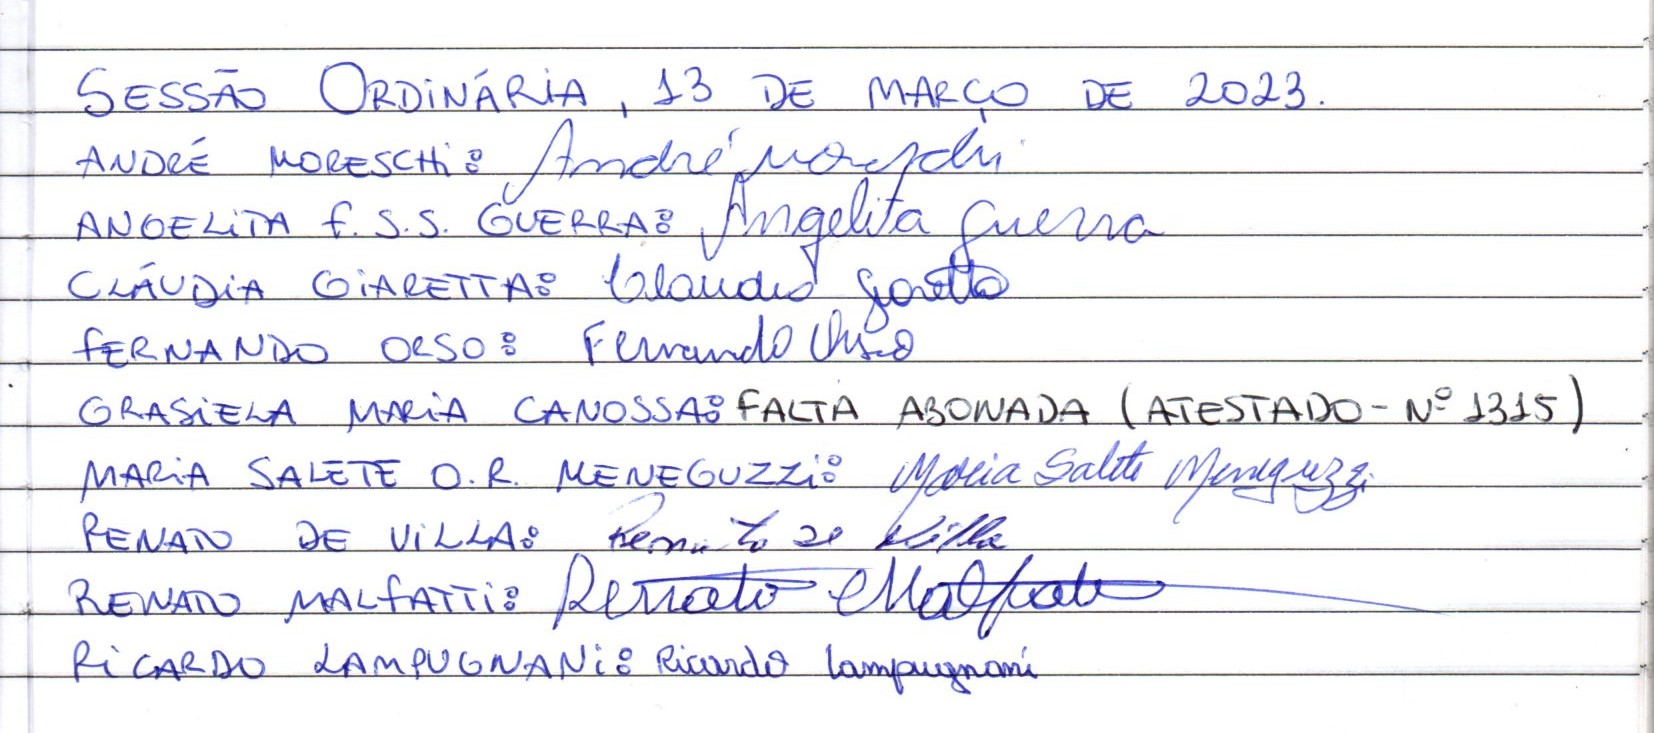 SESSÃO ORDINÁRIA, 13 DE MARÇO DE 2023.
ANDRÉ MORESCHI: André Moreschi
ANGELITA F. S. S. GUERRA: Angelita Guerra
CLÁUDIA GIARETTA: Claudia Giaretta
FERNANDO ORSO: Fernando Orso
GRASIELA MARIA CANOSSA: FALTA ABONADA (ATESTADO - Nº 1315)
MARIA SALETE O. R. MENEGUZZI: Maria Salete Meneguzzi
RENATO DE VILLA: Renato de Villa
RENATO MALFATTI: Renato Malfatti
RICARDO LAMPUGNANI: Ricardo Lampugnani